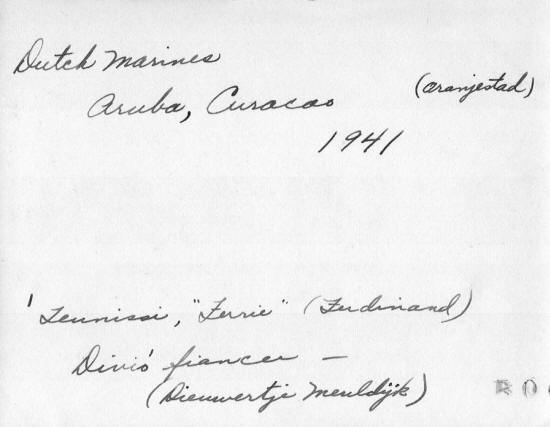 Dutch Marines
Aruba, Curacao (Oranjestad)
1941
' Teunissi, "Ferrie" (Ferdinand)
Divió fiancee —
(Dieuwertje Meuldijk)